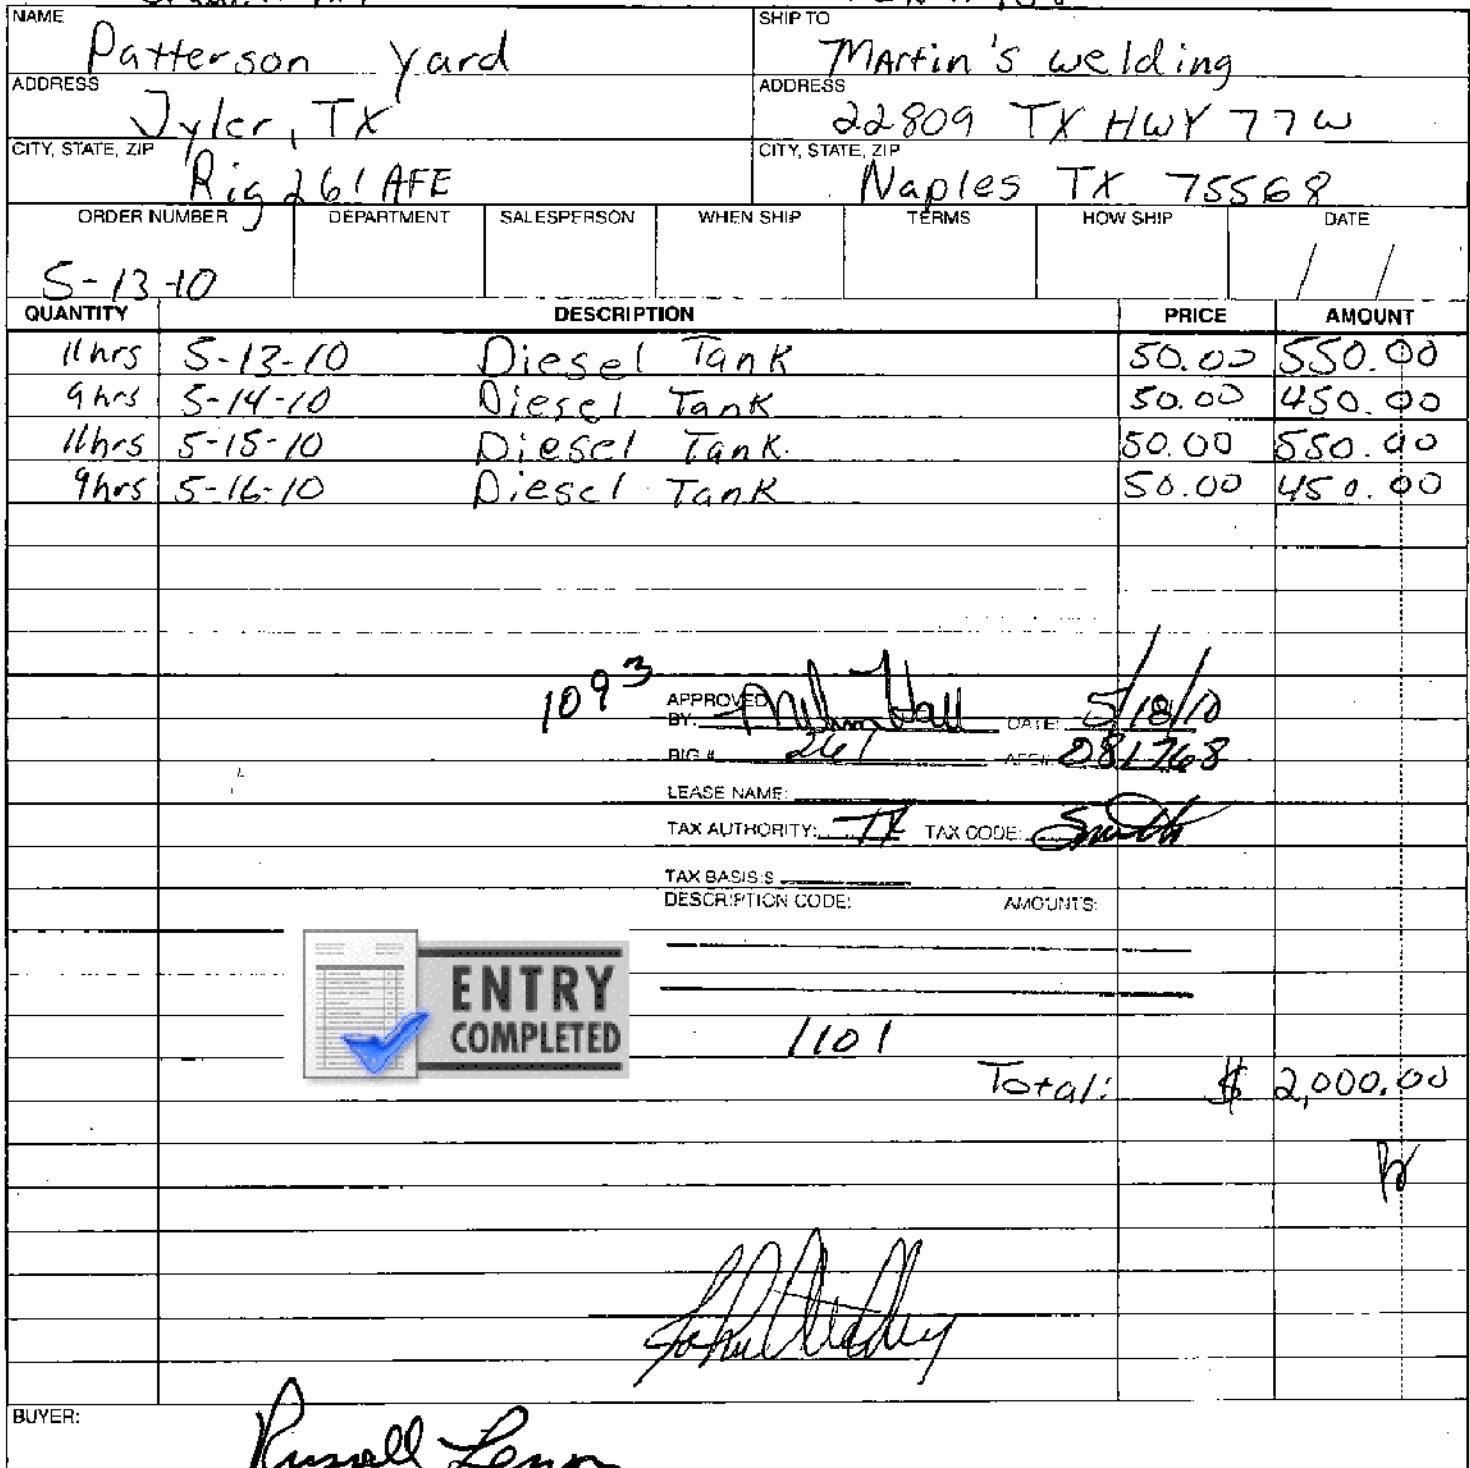 NAME SHIP TO
Patterson Yard Martin's welding
ADDRESS ADDRESS
Tyler, TX 22809 TX HWY 77W
CITY, STATE, ZIP CITY, STATE, ZIP
Rig 261 AFE Naples TX 75568
ORDER NUMBER DEPARTMENT SALESPERSON WHEN SHIP TERMS HOW SHIP DATE
5-13-10 / /
QUANTITY DESCRIPTION PRICE AMOUNT
11hrs 5-13-10 Diesel Tank 50.00 550.00
9hrs 5-14-10 Diesel Tank 50.00 450.00
11hrs 5-15-10 Diesel Tank 50.00 550.00
9hrs 5-16-10 Diesel Tank 50.00 450.00
1093
APPROVED
BY: DATE: 5/18/10
RIG # 261 AFE#: 081768
LEASE NAME:
TAX AUTHORITY: TX TAX CODE: Smith
TAX BASIS $
DESCRIPTION CODE: AMOUNTS:
ENTRY
COMPLETED
1101
Total: $ 2,000.00
BUYER:
Russell